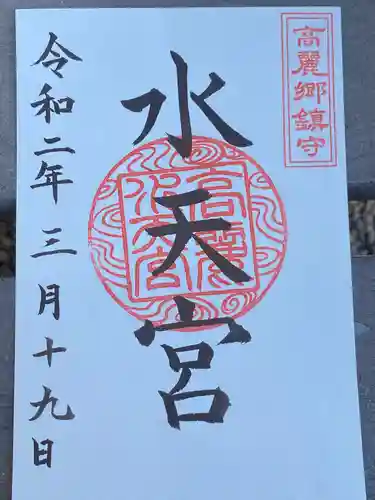 高麗郷鎮守
水天宮
高麗水天宮
令和二年三月十九日